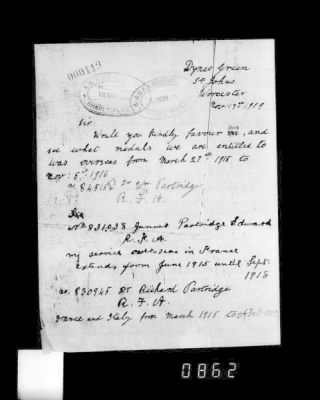 000119
Dynes Green
St Johns
Worcester
Nov 17th 1919
Sir
Would you kindly favour me, and
see what medals we are entitled to
was overseas from March 27th 1915 to
Nov. 5th, 1916
Dr Wm Partridge
R. F. A.
Sir
No 831038 Gunner Partridge Edward
R. F. A.
my service overseas in France
extends from June 1915 until Sept
1918
no. 830945 Dr Richard Partridge
R. F. A.
France and Italy from March 1915 to
0862